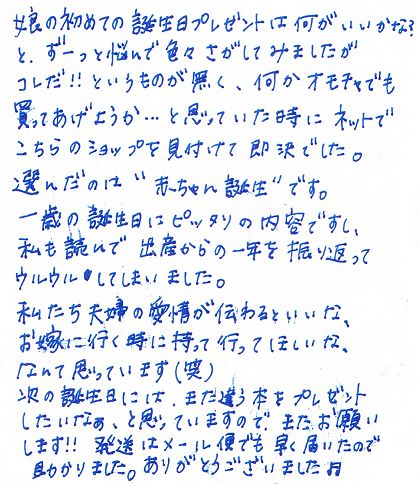 娘の初めての誕生日プレゼントは何がいいかな?
と、ずーっと悩んで色々さがしてみましたが
コレだ!!というものが無く、何かオモチャでも
買ってあげようか…と思っていた時にネットで
こちらのショップを見付けて即決でした。
選んだのは“赤ちゃん誕生”です。
一歳の誕生日にピッタリの内容ですし、
私も読んで出産からの一年を振り返って
ウルウルしてしまいました。
私たち夫婦の愛情が伝わるといいな、
お嫁に行く時に持って行ってほしいな、
なんて思っています(笑)
次の誕生日には、また違う本をプレゼント
したいなぁ、と思っていますので、またお願い
します!! 発送はメール便でも早く届いたので
助かりました。ありがとうございました